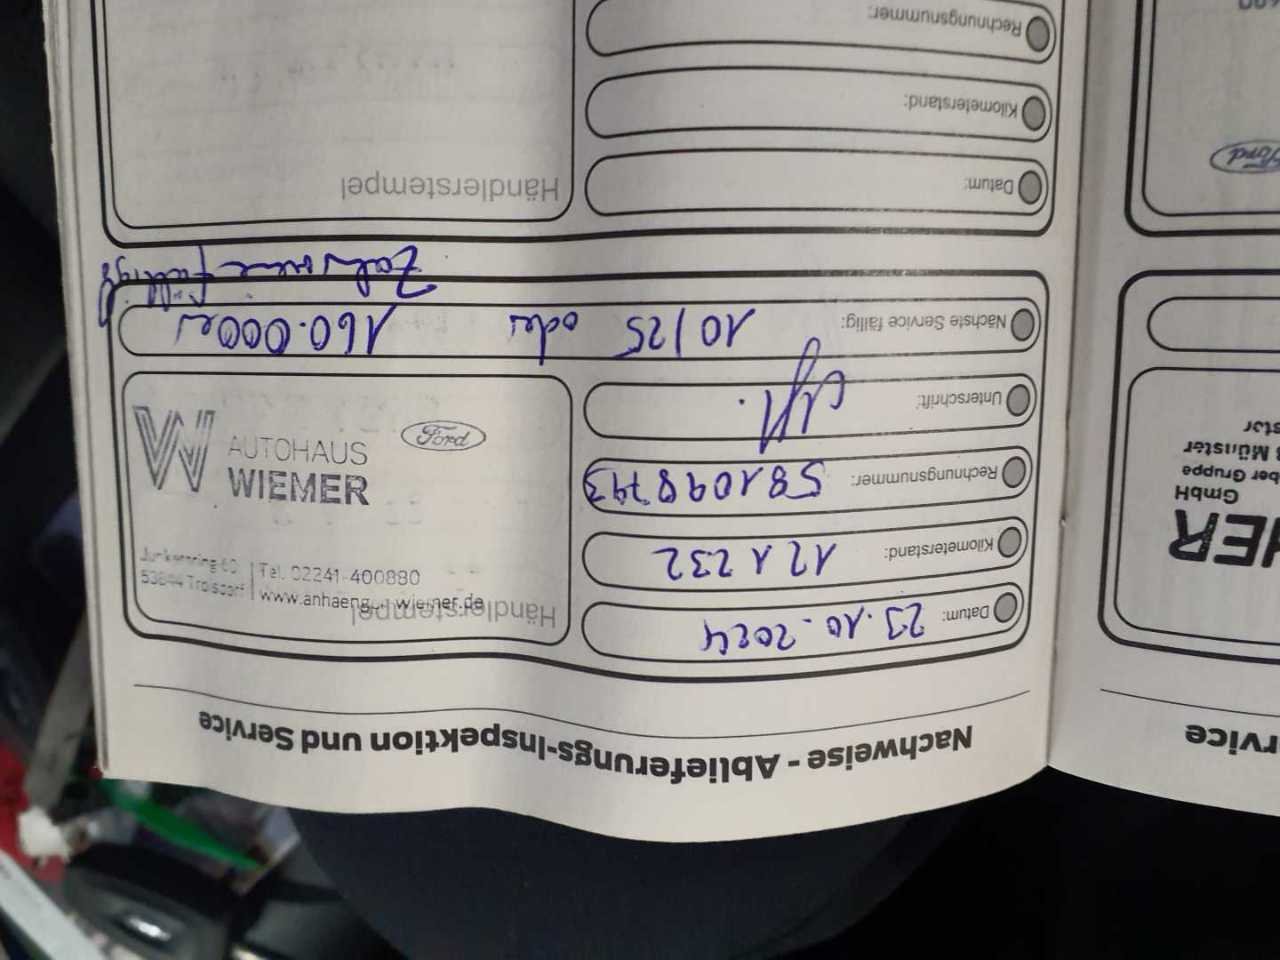 Nachweise - Ablieferungs-Inspektion und Service
Datum: 23.10.2024
Kilometerstand: 121232
Rechnungsnummer: 581098793
Unterschrift:
Nächste Service fällig: 10/25 oder 160.000er
Zahnriemen fällig
Händlerstempel
Ford
AUTOHAUS
WIEMER
Junkersring 60
53844 Troisdorf
Tel. 02241-400880
Datum:
Kilometerstand:
Rechnungsnummer:
Händlerstempel
Ford
GmbH
Münster